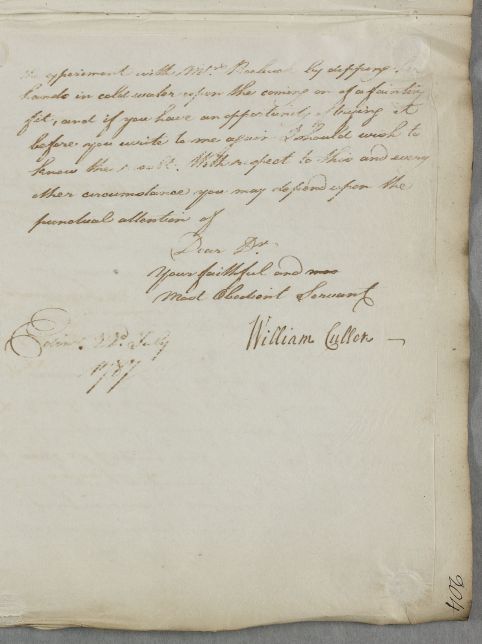 experiment with Mrs. by dipping her
hands in cold water upon the coming on of a fainting
fit, and if you have an opportunity of trying it
before you write to me again I should wish to
know the result. With respect to this and every
other circumstance you may depend upon the
punctual attention of
Dear Dr.
Your faithful and mos
Most Obedient Servant
William Cullen
Edinr. July
1787
406